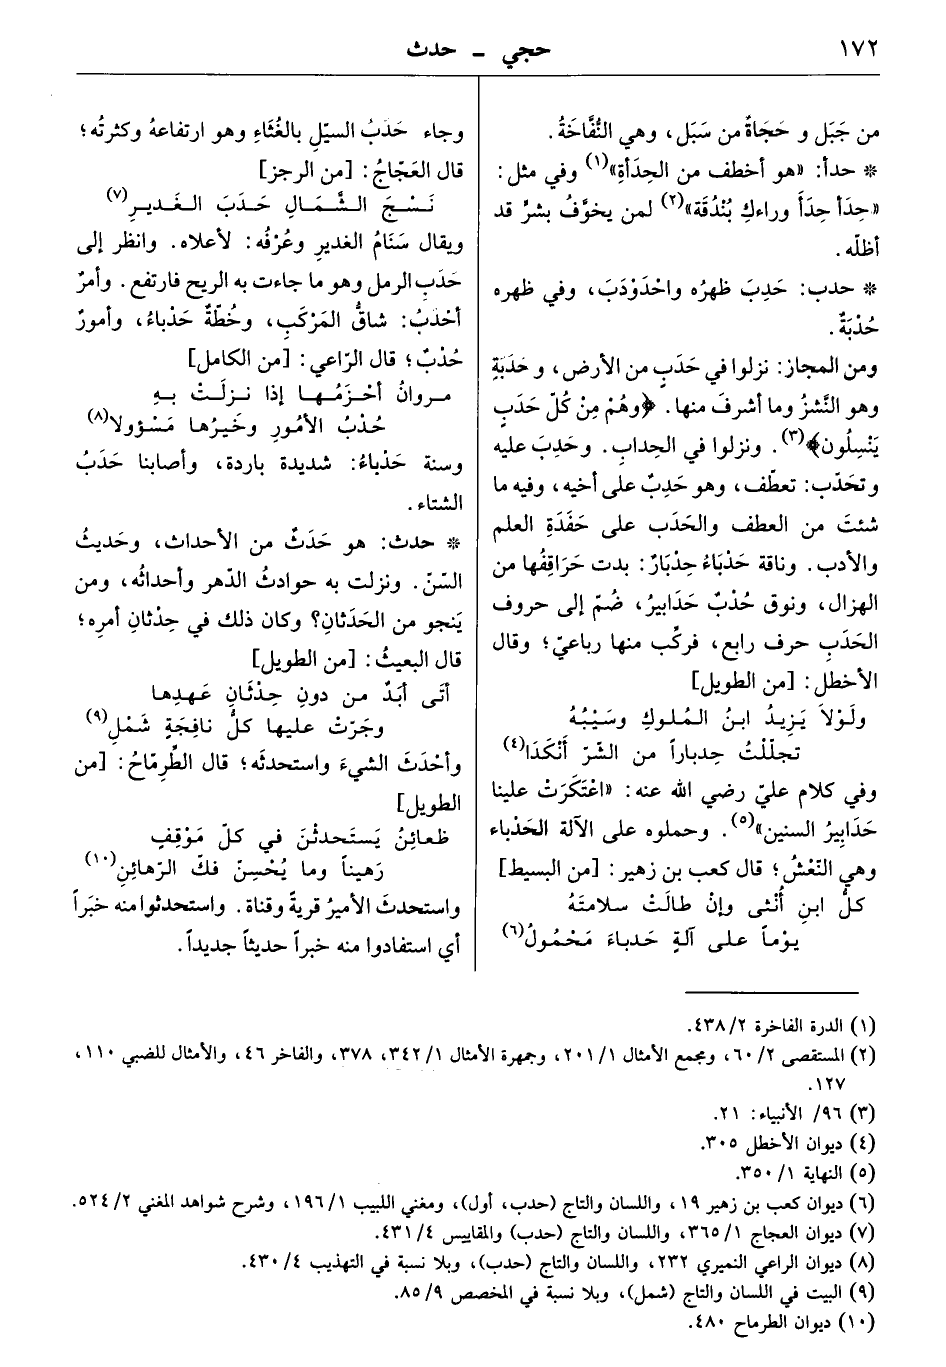 ١٧٢
حجي - حدث
من جَبَل و حَجَاةٌ من سَبَل، وهي النُّفَّاخَةُ.
* حدأ: «هو أخطف من الحِدَأةِ»(١) وفي مثل:
«حِدَأ حِدَأ وراءكِ بُنْدُقَة»(٢) لمن يخوَّفُ بشرٍّ قد
أظلّه.
* حدب: حَدِبَ ظهرُه واحْدَوْدَبَ، وفي ظهره
حُدْبَةٌ.
ومن المجاز: نزلوا في حَدَبٍ من الأرض، وحَدَبَةٍ
وهو النَّشزُ وما أشرفَ منها. ﴿وهُمْ مِنْ كُلّ حَدَبٍ
يَنْسِلُون﴾(٣). ونزلوا في الحِدابِ. وحَدِبَ عليه
وتحَدّب: تعطّف، وهو حَدِبٌ على أخيه، وفيه ما
شئتَ من العطف والحَدَب على حَفَدَةِ العلم
والأدب. وناقة حَدْبَاءُ حِدْبَارٌ: بدت حَرَاقِفُها من
الهزال، ونوق حُدْبٌ حَدَابيرُ، ضُمّ إلى حروف
الحَدَبِ حرف رابع، فركِّب منها رباعيّ؛ وقال
الأخطل: [من الطويل]
ولَوْلاَ يَزِيدُ ابنُ المُلوكِ وسَيْبُهُ
تجلّلْتُ حِدباراً من الشّرّ أَنْكَدَا(٤)
وفي كلام عليّ رضي الله عنه: «اعْتَكَرَتْ علينا
حَدَابيرُ السنين»(٥). وحملوه على الآلة الحَدْباء
وهي النّعْشُ؛ قال كعب بن زهير: [من البسيط]
كلُّ ابنِ أُنْثى وإنْ طالَتْ سلامتَهُ
يوْماً على آلةٍ حَدباءَ مَحْمُولُ(٦)
وجاء حَدَبُ السيّلِ بالغُثَاءِ وهو ارتفاعهُ وكثرتُه؛
قال العَجّاجُ: [من الرجز]
نَسْجَ الشَّمَالِ حَدَبَ الغَديرِ(٧)
ويقال سَنَامُ الغديرِ وعُرْفُه: لأعلاه. وانظر إلى
حَدَبِ الرمل وهو ما جاءت به الريح فارتفع. وأمرٌ
أحْدَبُ: شاقُّ المَرْكَبِ، وخُطّةٌ حَدْباءُ، وأمورٌ
حُدْبٌ؛ قال الرّاعي: [من الكامل]
مروانُ أحْزَمُها إذا نزلَتْ بهِ
حُدْبُ الأمُورِ وخَيرُها مَسْؤولا(٨)
وسنة حَدْباءُ: شديدة باردة، وأصابنا حَدَبُ
الشتاء.
* حدث: هو حَدَثٌ من الأحداث، وحَديثُ
السّنّ. ونزلت به حوادثُ الدّهر وأحداثُه، ومن
يَنجو من الحَدَثانِ؟ وكان ذلك في حِدْثانِ أمرِه؛
قال البعيثُ: [من الطويل]
أتَى أبَدٌ من دونِ حِدْثَانِ عَهدِها
وجَرّتْ عليها كلُّ نافِجَةٍ شَمْلِ(٩)
وأحْدَثَ الشيءَ واستحدثَه؛ قال الطِّرمّاحُ: [من
الطويل]
ظعائِنُ يَستَحدثْنَ في كلّ مَوْقِفٍ
رَهيناً وما يُحْسِنّ فكّ الرّهائِنِ(١٠)
واستحدثَ الأميرُ قريةً وقناة. واستحدثوا منه خبَراً
أي استفادوا منه خبراً حديثاً جديداً.
(١) الدرة الفاخرة ٤٣٨/٢.
(٢) المستقصى ٦٠/٢، ومجمع الأمثال ٢٠١/١، وجمهرة الأمثال ٣٤٢/١، ٣٧٨، والفاخر ٤٦، والأمثال للضبي ١١٠،
١٢٧.
(٣) ٩٦/ الأنبياء: ٢١.
(٤) ديوان الأخطل ٣٠٥.
(٥) النهاية ٣٥٠/١.
(٦) ديوان كعب بن زهير ١٩، واللسان والتاج (حدب، أول)، ومغني اللبيب ١٩٦/١، وشرح شواهد المغني ٥٢٤/٢.
(٧) ديوان العجاج ٣٦٥/١، واللسان والتاج (حدب) والمقاييس ٤٣١/٤.
(٨) ديوان الراعي النميري ٢٣٢، واللسان والتاج (حدب)، وبلا نسبة في التهذيب ٤٣٠/٤.
(٩) البيت في اللسان والتاج (شمل)، وبلا نسبة في المخصص ٨٥/٩.
(١٠) ديوان الطرماح ٤٨٠.